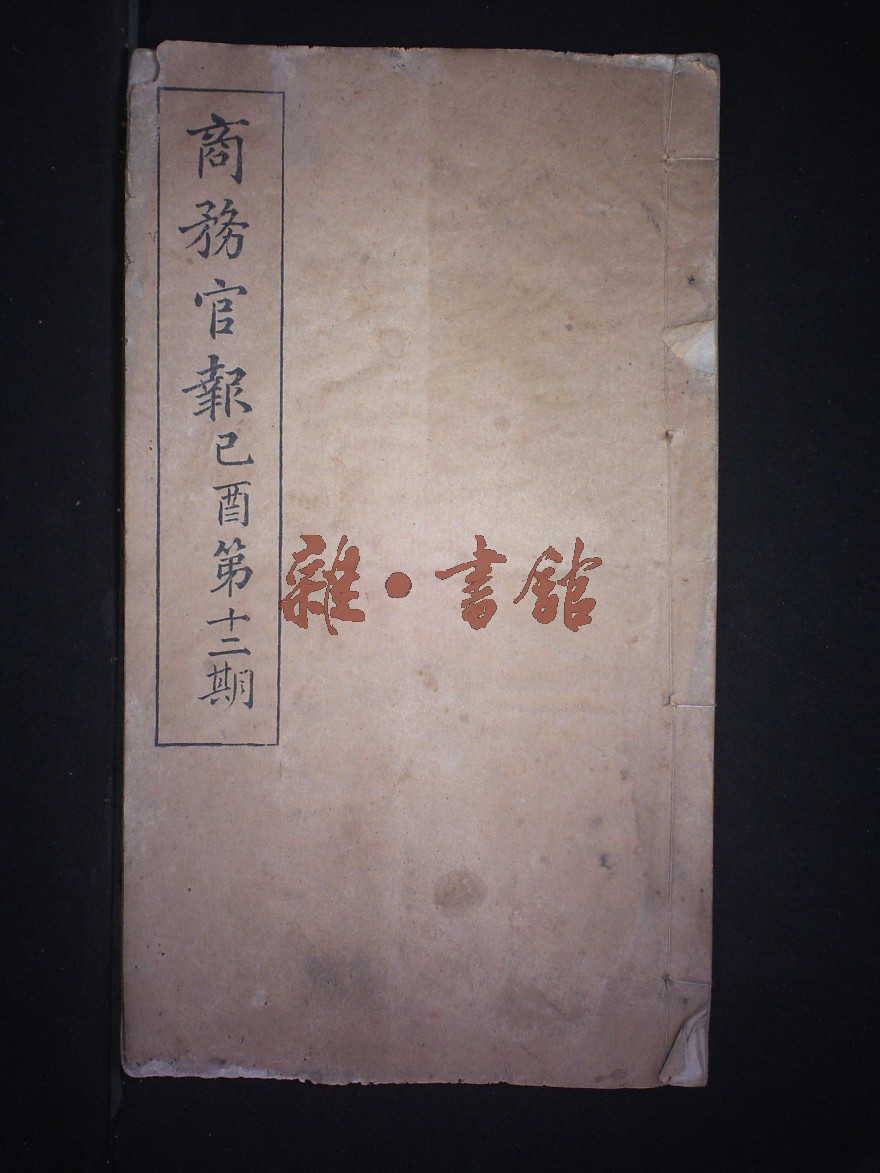 商務官報己酉第十二期
雜·書館